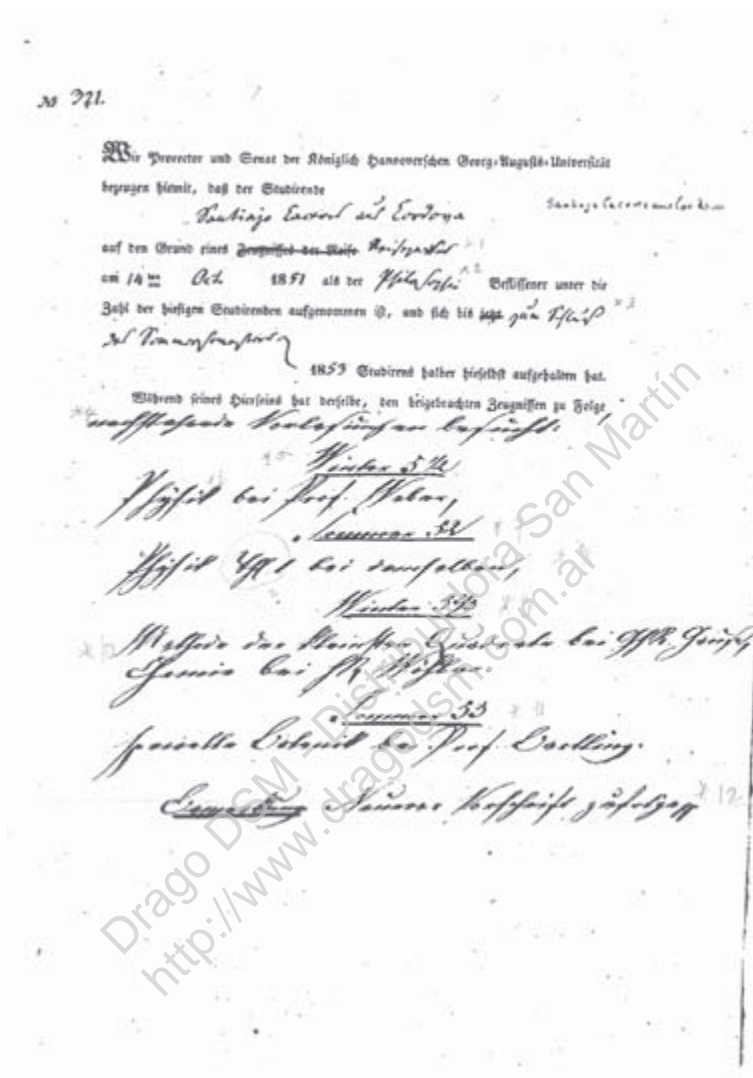 № 371.
Wir Prorector und Senat der Königlich Hannoverschen Georg-Augusts-Universität
bezeugen hiemit, daß der Studirende
Santiago Caceres aus Cordova
Santiago Caceres aus Cordova
auf den Grund eines Zeugnisses der Reife Reisepasses *1
am 14ten Oct. 1851 als der Philosophie *2 Beflissener unter die
Zahl der hiesigen Studirenden aufgenommen ist, und sich bis jetzt zum Schluß *3
des Sommersemesters
1853 Studirens halber hieselbst aufgehalten hat.
Während seines Hierseins hat derselbe, den beigebrachten Zeugnissen zu Folge,
*4 nachstehende Vorlesungen besucht:
Winter 51/2
Physik bei Prof. Weber,
Sommer 52
Physik bei demselben,
Winter 52/3
Methode der kleinsten Quadrate bei Gauß,
Chemie bei Wöhler.
Sommer 53 *11
specielle Botanik bei Prof. Bartling.
Bemerkung Neuerer Vorschrift zufolge *12
Drago DSM - Distribuidora San Martín
http://www.dragodsm.com.ar